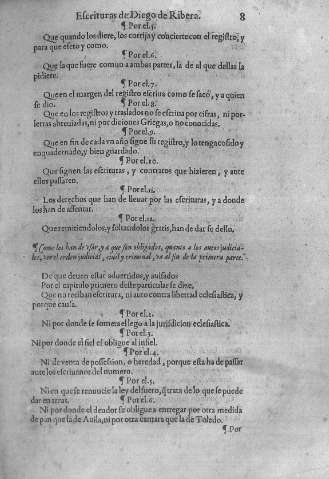 Escrituras de Diego de Ribera. 8
¶ Por el.5.
Que quando los diere, los corrija y concierte con el registro, y
para que efeto y como.
¶ Por el.6.
Que la que fuere comun a ambas partes, la de al que dellas la
pidiere.
¶ Por el.7.
Que en el margen del registro escriua como se sacò, y a quien
se dio. ¶ Por el.8.
Que en los registros y traslados no se escriua por cifras, ni por
letras abreuiadas, ni por diciones Griegas, o no conocidas.
¶ Por el.9.
Que en fin de cada vn año signe su registro, y lo tenga cosido y
enquadernado, y bien guardado.
¶ Por el.10.
Que signen las escrituras, y contratos que hizieren, y ante
ellos passaren.
¶ Por el.11.
Los derechos que han de lleuar por las escrituras, y a donde
los han de assentar.
¶ Por el.12.
Que remitiendolos, y soltandolos gratis, han de dar fe dello.
¶ Como los han de vsar, y a que son obligados, quanto a los autos judicia-
les, por el orden judicial, ciuil y criminal, va al fin de la primera parte.
De que deuen estar aduertidos, y auisados
Por el capitulo primero deste particular se dize,
Que no reciban escritura, ni auto contra libertad eclesiastica, y
porque causa.
¶ Por el.2.
Ni por donde se someta el lego a la jurisdicion eclesiastica.
¶ Por el.3.
Ni por donde el fiel se obligue al infiel.
¶ Por el.4.
Ni de venta de possession, o heredad, porque esta ha de passar
ante los escriuanos del numero.
¶ Por el.5.
Ni en que se renuncie la ley del fuero, q̃ trata de lo que se puede
dar en arras. ¶ Por el.6.
Ni por donde el deudor se obligue a entregar por otra medida
de pan que la de Auila, ni por otra cantara que la de Toledo.
¶ Por